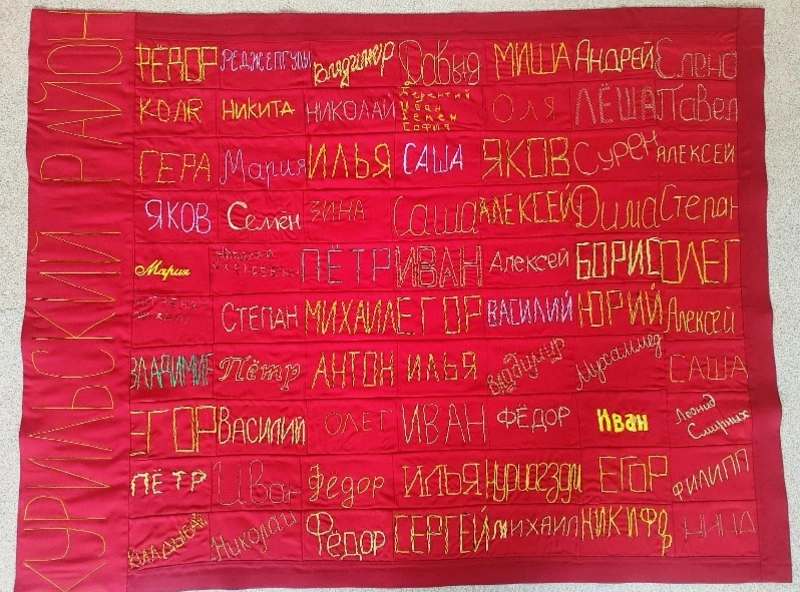 КУРИЛЬСКИЙ РАЙОН
ФЁДОР РЕДЖЕПГУЛЫ Владимир Давыд МИША АНДРЕЙ Елена
КОЛЯ НИКИТА НИКОЛАЙ Терентий Иван Семен София ОЛЯ ЛЁША Павел
ГЕРА Мария ИЛЬЯ САША ЯКОВ СУРЕН АЛЕКСЕЙ
ЯКОВ Семён ЗИНА Саша АЛЕКСЕЙ Дима Степан
Мария ПЁТР ИВАН Алексей БОРИС ОЛЕГ
СТЕПАН МИХАИЛ ЕГОР ВАСИЛИЙ ЮРИЙ Алексей
ВЛАДИМИР Пётр АНТОН ИЛЬЯ Владимир Мухаммед САША
ЕГОР ВАСИЛИЙ ОЛЕГ ИВАН ФЁДОР Иван Леонид Смирных
ПЁТР Иван Федор ИЛЬЯ ЕГОР ФИЛИПП
Николай Фёдор СЕРГЕЙ МИХАИЛ НИКИФОР НИНА